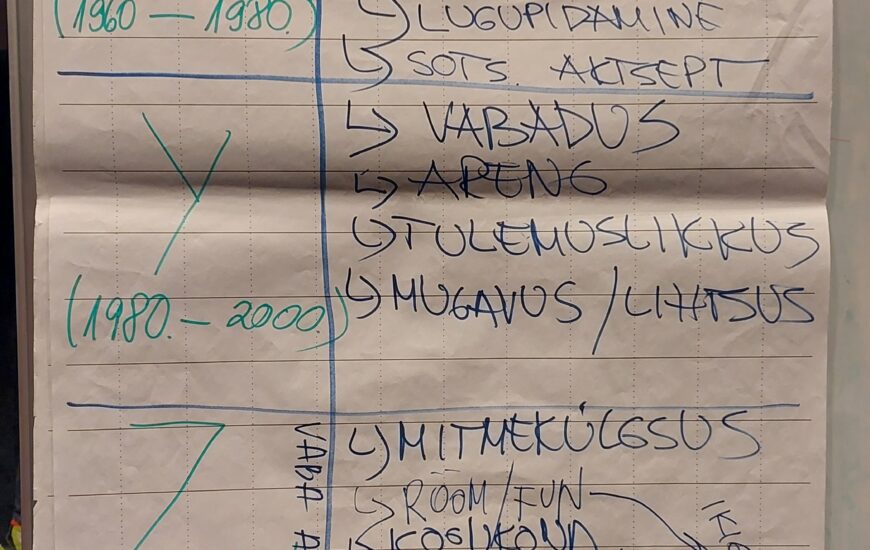 (1960 – 1980.)
↳ LUGUPIDAMINE
↳ SOTS. AKTSEPT
Y
(1980. – 2000.)
↳ VABADUS
↳ ARENG
↳ TULEMUSLIKKUS
↳ MUGAVUS / LIHTSUS
Z
VABA
↳ MITMEKÜLGSUS
↳ RÕÕM / FUN